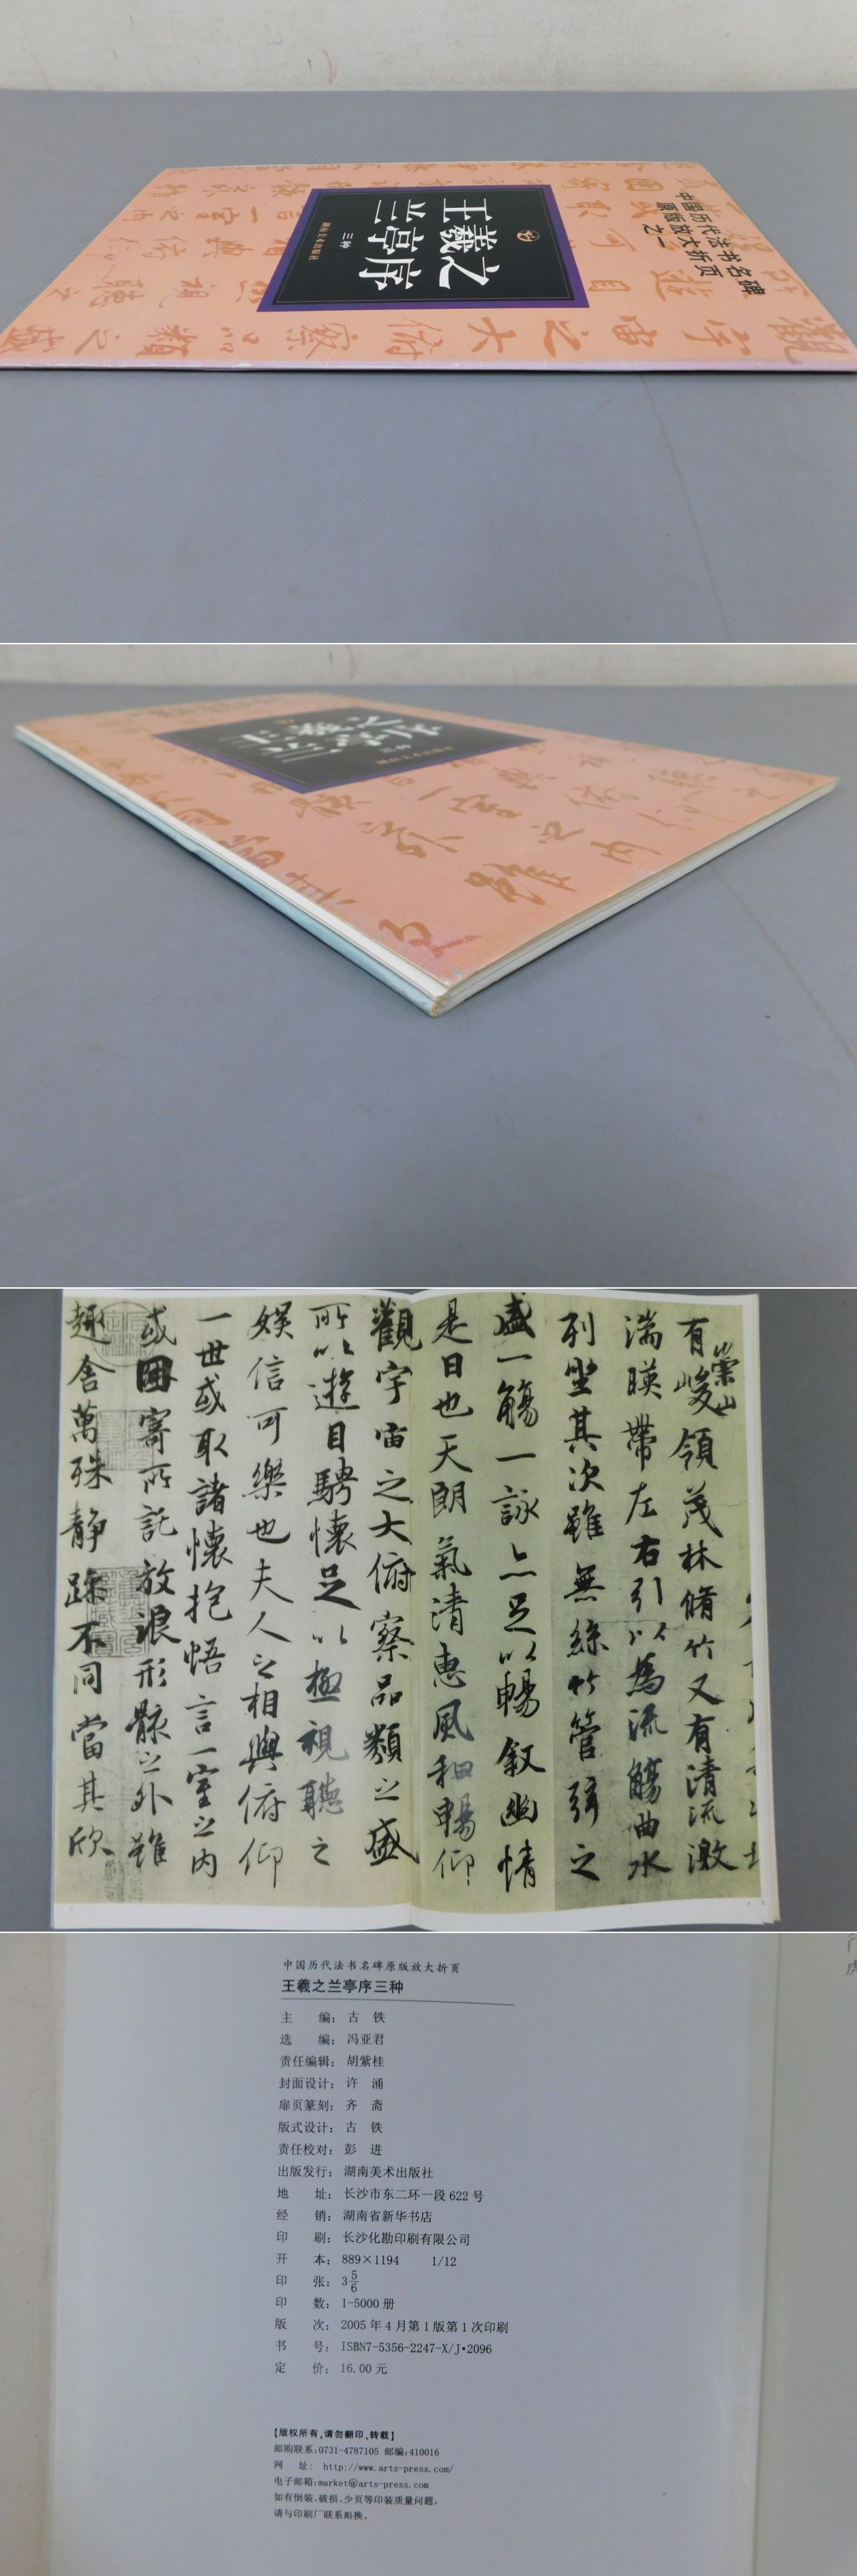 中国历代法书名碑
原版放大折页之一
王羲之
兰亭序
三种
湖南美术出版社
觀宇宙之大俯察品類之盛
崇山
有峻領茂林脩竹又有清流激
湍暎帶左右引以為流觴曲水
列坐其次雖無絲竹管弦之
盛一觴一詠亦足以暢敘幽情
是日也天朗氣清惠風和暢仰
觀宇宙之大俯察品類之盛
所以遊目騁懷足以極視聽之
娛信可樂也夫人之相與俯仰
一世或取諸懷抱悟言一室之内
或因寄所託放浪形骸之外雖
趣舍萬殊静躁不同當其欣
中国历代法书名碑原版放大折页
王羲之兰亭序三种
主 编：古 铁
选 编：冯亚君
责任编辑：胡紫桂
封面设计：许 涌
扉页篆刻：齐 斋
版式设计：古 铁
责任校对：彭 进
出版发行：湖南美术出版社
地 址：长沙市东二环一段622号
经 销：湖南省新华书店
印 刷：长沙化勘印刷有限公司
开 本：889×1194 1/12
印 张：3 5/6
印 数：1-5000册
版 次：2005年4月第1版第1次印刷
书 号：ISBN7-5356-2247-X/J·2096
定 价：16.00元
【版权所有,请勿翻印、转载】
邮购联系:0731-4787105 邮编:410016
网 址: http://www.arts-press.com/
电子邮箱:market@arts-press.com
如有倒装、破损、少页等印装质量问题,
请与印刷厂联系斢换。